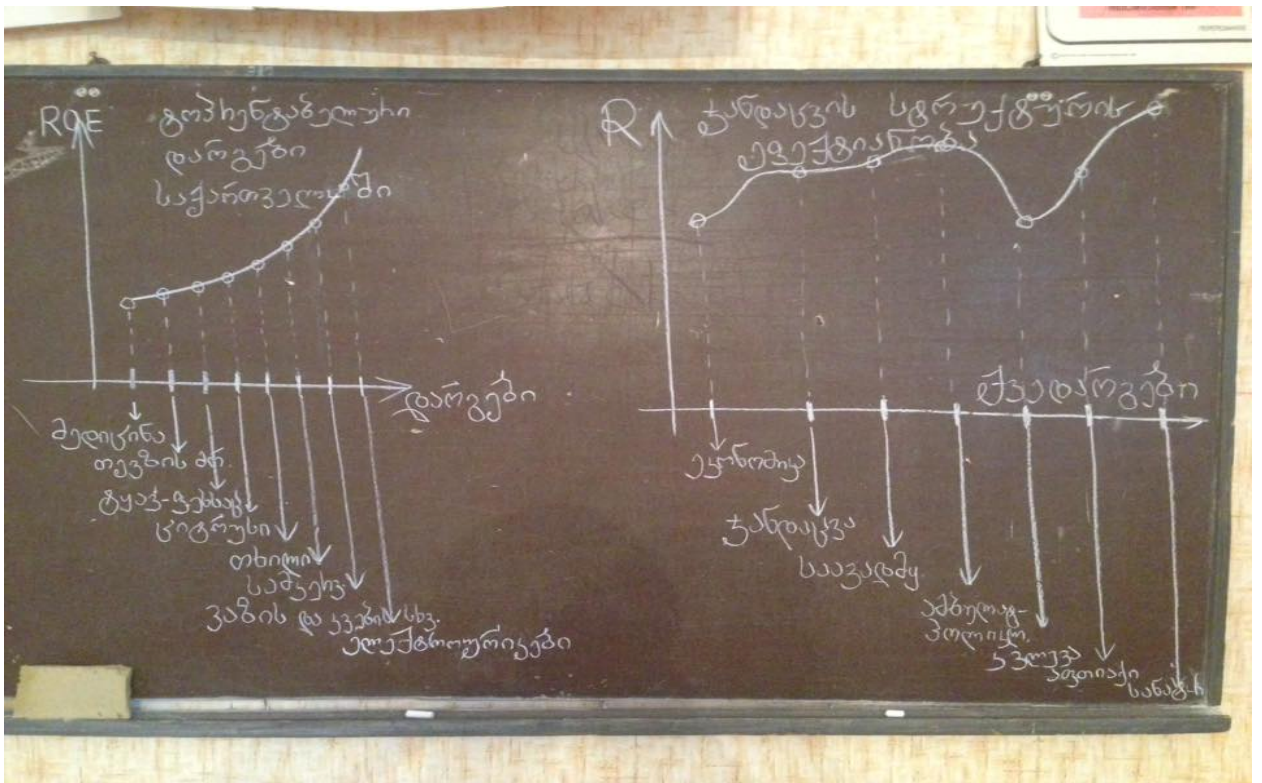 ROE
ტოპრენტაბელური
დარგები
საქართველოში
დარგები
მედიცინა
თევზის მრ.
ტყავ-ფეხსაც.
ციტრუსი
თხილი
სამკერვ.
ვაზის და კვების სხვ.
ელექტროურიკები
R
ჯანდაცვის სტრუქტურის
ეფექტიანობა
ქვედარგები
ეკონომიკა
ჯანდაცვა
საავადმყ.
ამბულატ-
პოლიკლ.
კვლევა
აფთიაქი
სანატ-რ